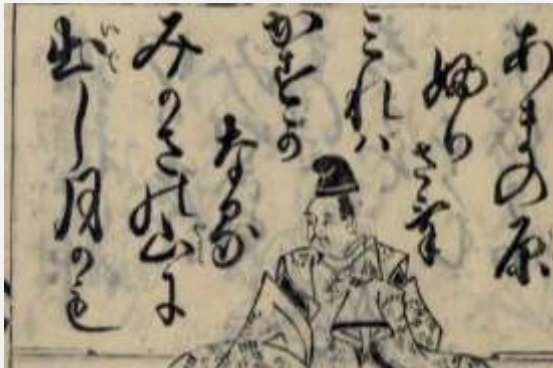 あまの原
ふりさけ
みれハ
かすか
なる
みかさの山に
出し月かも